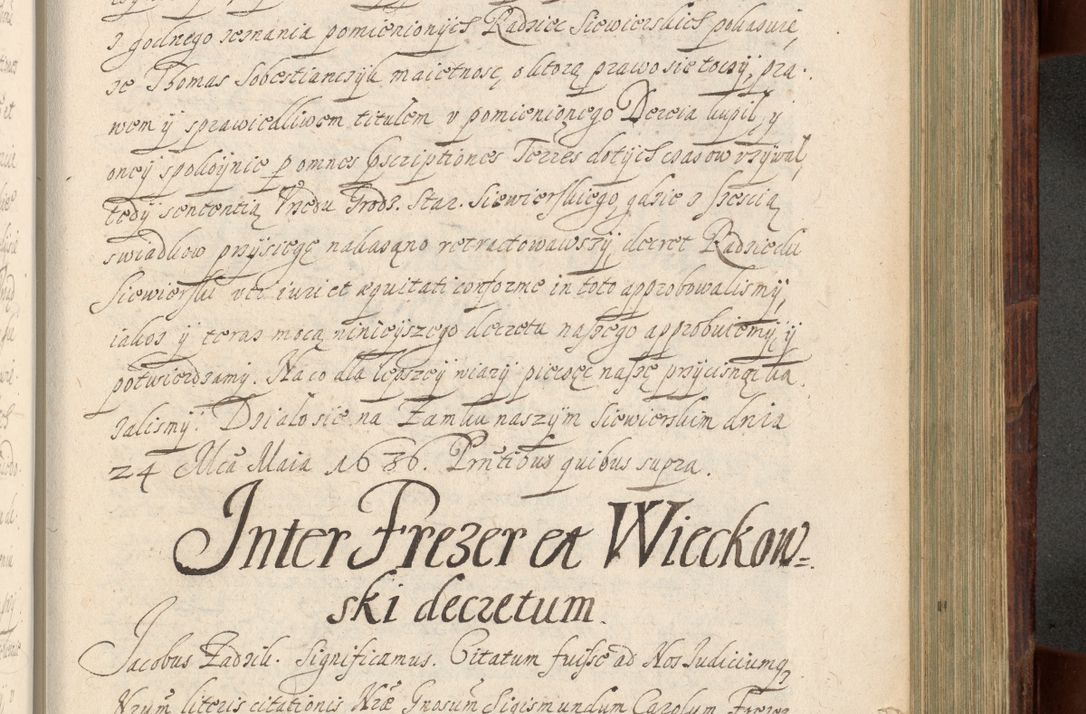 z godnego zeznania pomienionych Radziec Siewierskich pokazuie,
że Thomas Sobestianczyk maiętnosc, o ktorą prawo się toczy, pra-
wem y sprawiedliwem titulem v pomienionego Dereia kupil, y
oney spokoynie p omnes pscriptiones Terres dotych czasow vzywal,
tedy sententią Vrzędu Grodz. Star. Siewierskiego, gdzie z sześcią
swiadkow przysięgę nakazano retractowawszy, decret Radziecki
Siewierski vti iuri et æquitati conforme in toto approbowalismy,
iakosz y teraz mocą ninieyszego decretu naszego approbuiemy, y
potwierdzamy. Na co dla lepszey wiary pieczęc naszę przycisnąc ka
zalismy. Dzialo się na Zamku naszym Siewierskim dnia
24 Mca Maia 1636. Pñtibus quibus supra.
Inter Frezer et Wieckow=
ski decretum.
Jacobus Zadzik. Significamus. Citatum fuisse ad Nos Iudiciumq
Nrum literis citationis Nræ Gnosum Sigismundum Carolum Frezer